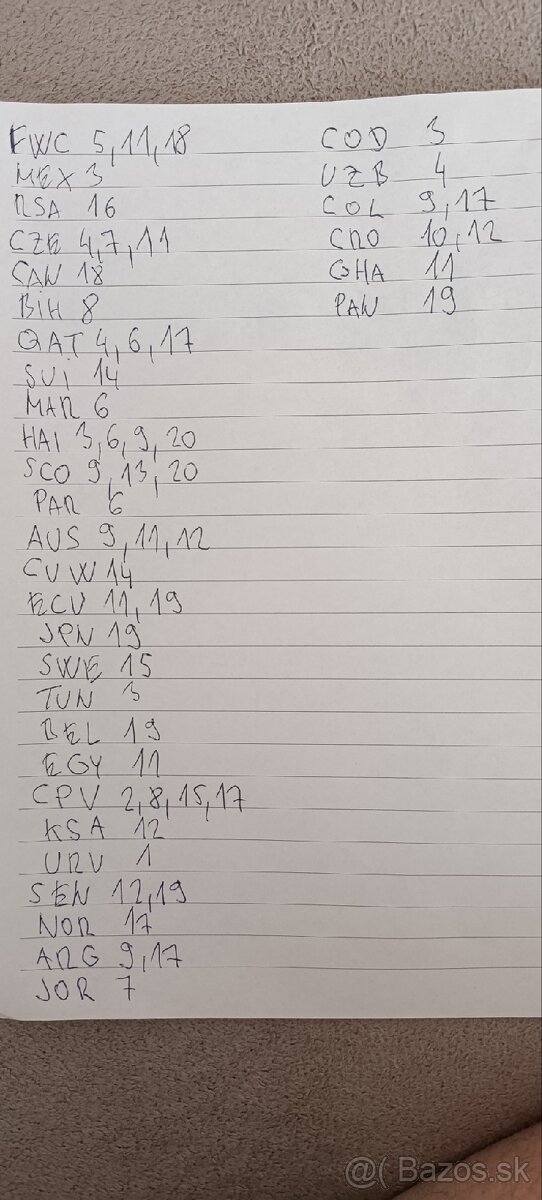 FWC 5,11,18
MEX 3
RSA 16
CZE 4,7,11
CAN 18
BIH 8
QAT 4,6,17
SUI 14
MAR 6
HAI 3,6,9,20
SCO 9,13,20
PAR 6
AUS 9,11,12
CUW 14
ECU 11,19
JPN 19
SWE 15
TUN 3
BEL 19
EGY 11
CPV 2,8,15,17
KSA 12
URU 1
SEN 12,19
NOR 17
ARG 9,17
JOR 7
COD 3
UZB 4
COL 9,17
CRO 10,12
GHA 11
PAN 19
@( Bazos.sk